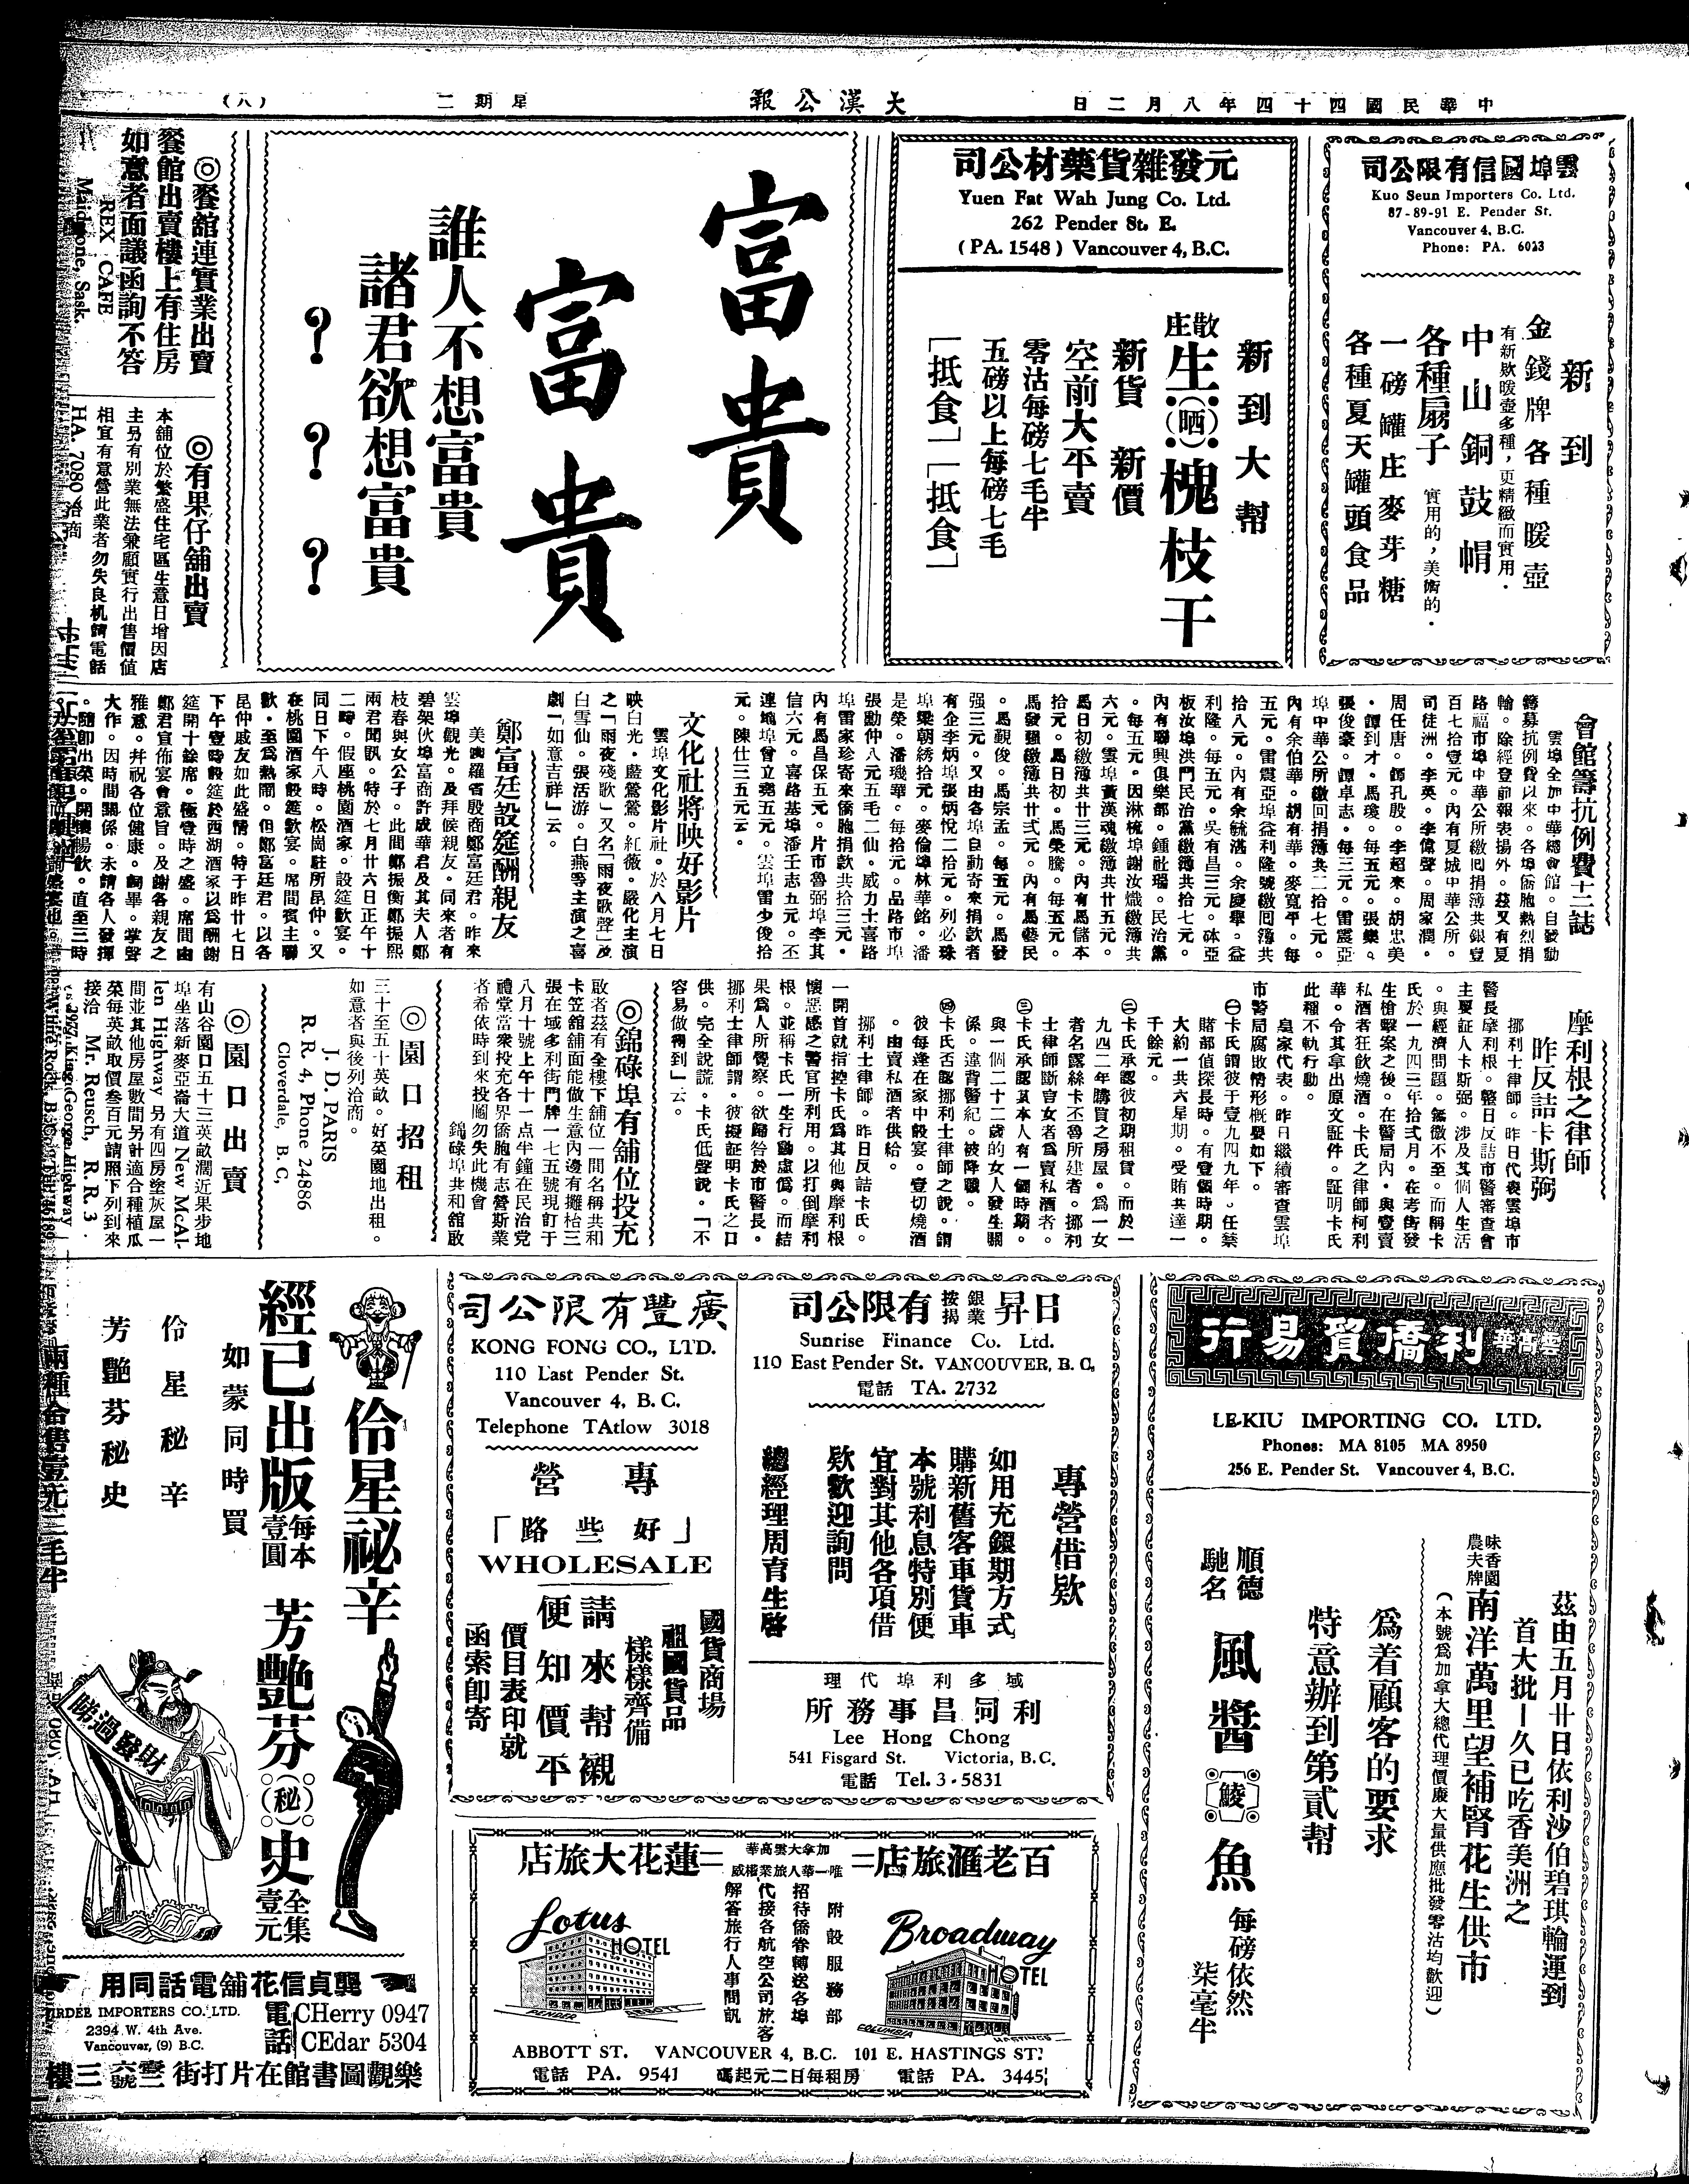 中華民國四十四年八月二日
大漢公報
星期二
(八)
雲埠國信有限公司
Kuo Seun Importers Co. Ltd.
87-89-91 E. Pender St.
Vancouver 4, B.C.
Phone: PA. 6023
新到
金錢牌各種暖壺
有新欵暖壺多種，更精緻而實用．
中山銅鼓帽
各種扇子 實用的，美術的．
一磅罐庄麥芽糖
各種夏天罐頭食品
元發雜貨藥材公司
Yuen Fat Wah Jung Co. Ltd.
262 Pender St. E.
(PA. 1548) Vancouver 4, B.C.
新到大幫
散庄生(晒)槐枝干
新貨 新價
空前大平賣
零沽每磅七毛半
五磅以上每磅七毛
「抵食」「抵食」
富貴
富貴
誰人不想富貴
諸君欲想富貴
? ? ?
◎餐舘連實業出賣
餐館出賣樓上有住房
如意者面議函詢不答
REX CAFE
Maidstone, Sask.
◎有果仔舖出賣
本舖位於繁盛住宅區生意日增因店
主另有別業無法兼顧實行出售價值
相宜有意營此業者勿失良机請電話
HA. 7080 洽商
會館籌抗例費十二誌
雲埠全加中華總會館。自發動
籌募抗例費以來。各埠僑胞熱烈捐
輸。除經登前報表揚外。茲又有夏
路福市埠中華公所繳囘捐簿共銀壹
百七拾壹元。內有夏城中華公所。
司徒洲。李英。李偉聲。周家潤。
周任唐。鄧孔殷。李超來。胡忠美
。譚到才。馬瓊。每五元。張樂。
張俊豪。譚卓志。每三元。雷震亞
埠中華公所繳回捐簿共二十拾七元。
內有余伯華。胡有華。麥寬平。每
五元。雷震亞埠益利隆號繳囘簿共
拾八元。內有余毓滿。余慶舉。益
利隆。每五元。吳有昌三元。砵亞
板汝埠洪門民治黨繳簿共拾七元。
內有聯興俱樂部。鍾社瑞。民治黨
。每五元。因淋梳埠謝汝熾繳簿共
六元。雲埠黃漢魂繳簿共廿五元。
馬日初繳簿共廿三元。內有馬儲本
拾元。馬日初。馬榮騰。每五元。
馬發强繳簿共廿弍元。內有馬藝民
。馬觐俊。馬宗孟。每五元。馬發
强三元。又由各埠自動寄來捐款者
有企李炳埠張炳悅二拾元。列必珠
埠梁朝綉拾元。麥倫埠林華銘。潘
是榮。潘璣華。每拾元。品路市埠
張勳仲八元五毛二仙。威力士喜路
埠雷家珍寄來僑胞捐款共拾三元。
內有馬昌保五元。片市魯弼埠李其
信六元。喜路基埠潘壬志五元。丕
連地埠曾立堯五元。雲埠雷少俊拾
元。陳仕三五元云。
文化社將映好影片
雲埠文化影片社。於八月七日
映白光。藍鶯鶯。紅薇。嚴化主演
之「雨夜殘歌」又名「雨夜歌聲」及
白雪仙。張活游。白燕等主演之喜
劇「如意吉祥」云。
鄭富廷設筵酬親友
美澳羅省殷商鄭富廷君。昨來
雲埠觀光。及拜候親友。同來者有
碧架伙埠富商許成華君及其夫人鄭
枝春與女公子。此間鄭振衡鄭振熙
兩君聞訊。特於七月廿六日正午十
二時。假座桃園酒家。設筵歡宴。
同日下午八時。松崗駐所昆仲。又
在桃園酒家設筵歡宴。席間賓主聯
歡。至爲熱鬧。但鄭富廷君。以各
昆仲戚友如此盛情。特于昨廿七日
下午壹時設筵於西湖酒家以爲酬謝
筵開十餘席。極壹時之盛。席間由
鄭君宣佈宴會意旨。及謝各親友之
雅意。幷祝各位健康。詞畢。掌聲
大作。因時間關係。未請各人發揮
。隨即出菜。開懷暢飲。直至三時
摩利根之律師
昨反詰卡斯弼
挪利士律師。昨日代表雲埠市
警長摩利根。鑒日反詰市警審查會
主要証人卡斯弼。涉及其個人生活
。與經濟問題。無微不至。而稱卡
氏於一九四三年拾弍月。在考街發
生槍擊案之後。在警局內。與壹賣
私酒者狂飲燒酒。卡氏之律師柯利
華。令其拿出原文証件。証明卡氏
此種不軌行動。
皇家代表。昨日繼續審查雲埠
市警局腐敗情形概要如下。
㈠卡氏謂彼于壹九四九年。任禁
賭部值探長時。有壹個時期。
大約一共六星期。受賄共達一
千餘元。
㈡卡氏承認彼初期租賃。而於一
九四二年購買之房屋。爲一女
者名露絲卡丕魯所建者。挪利
士律師斷言女者爲賣私酒者。
㈢卡氏承認其本人有一個時期。
與一個二十二歲的女人發生關
係。違背警紀。被降職。
㈣卡氏否認挪利士律師之說。謂
彼每逢在家中設宴。壹切燒酒
。由賣私酒者供給。
挪利士律師。昨日反詰卡氏。
一開首就指控卡氏爲其他與摩利根
懷惡感之警官所利用。以打倒摩利
根。並稱卡氏一生行動虛僞。而結
果爲人所覺察。欲歸咎於市警長。
挪利士律師謂。彼擬証明卡氏之口
供。完全說謊。卡氏低聲說。「不
容易做得到」云。
◎錦碌埠有舖位投充
啟者茲有全樓下舖位一間名稱共和
卡笠舘舖面能做生意內邊有攤枱三
張在域多利街門牌一七五號現訂于
八月十號上午十一点半鐘在民治黨
禮堂當衆投充各界僑胞有志營斯業
者希依時到來投閫勿失此機會
錦碌埠共和舘啟
◎園口招租
三十至五十英畝。好菜園地出租。
如意者與後列洽商。
J. D. PARIS
R. R. 4, Phone 24886
Cloverdale, B. C,
◎園口出賣
有山谷園口五十三英畝濶近果步地
埠坐落新麥亞崙大道 New McAl-
len Highway 另有四房塗灰屋一
間並其他房屋數間另計適合種植瓜
菜每英畝取價叁百元請照下列到來
接洽 Mr. Reusch, R. R. 3
2977 King George Highway
White Rock, B. C.
雲高華利僑貿易行
LE-KIU IMPORTING CO. LTD.
Phones: MA 8105 MA 8950
256 E. Pender St. Vancouver 4, B.C.
茲由五月廿日依利沙伯碧琪輪運到
首大批—久已吃香美洲之
味香園農夫牌南洋萬里望補腎花生供市
(本號爲加拿大總代理價廉大量供應批發零沽均歡迎)
爲着顧客的要求
特意辦到第貳幫
順德馳名 風醬鯪魚 每磅依然柒毫半
日昇銀業按揭有限公司
Sunrise Finance Co. Ltd.
110 East Pender St. VANCOUVER, B. C,
電話 TA. 2732
專營借欵
如用充銀期方式
購新舊客車貨車
本號利息特別便
宜對其他各項借
欵歡迎詢問
總經理周育生啓
域多利埠代理
利同昌事務所
Lee Hong Chong
541 Fisgard St. Victoria, B.C.
電話 Tel. 3-5831
廣豐有限公司
KONG FONG CO., LTD.
110 East Pender St.
Vancouver 4, B. C.
Telephone TAtlow 3018
專營
「好些路」
WHOLESALE
國貨商場
祖國貨品
樣樣齊備
請來幫襯
便知價平
價目表印就
函索即寄
百老滙旅店
蓮花大旅店
加拿大雲高華
唯一華人旅業權威
附設服務部
招待僑眷轉送各埠
代接各航空公司旅客
解答旅行人事問訊
Broadway HOTEL
COLUMBIA
HASTINGS
Lotus HOTEL
PENDER
ABBOTT
ABBOTT ST. VANCOUVER 4, B.C. 101 E. HASTINGS ST.
電話 PA. 9541 房租每日二元起碼 電話 PA. 3445
伶星祕辛
經已出版 每本壹圓
芳艷芬(秘)史 全集壹元
如蒙同時買
伶星秘辛
芳艷芬秘史
兩種合售壹元三毛半
睇過發財
龔貞信花舖電話同用
IMPORTERS CO. LTD.
2394 W. 4th Ave.
Vancouver, (9) B.C.
電話 CHerry 0947
CEdar 5304
樂觀圖書館在片打街壹六號三樓